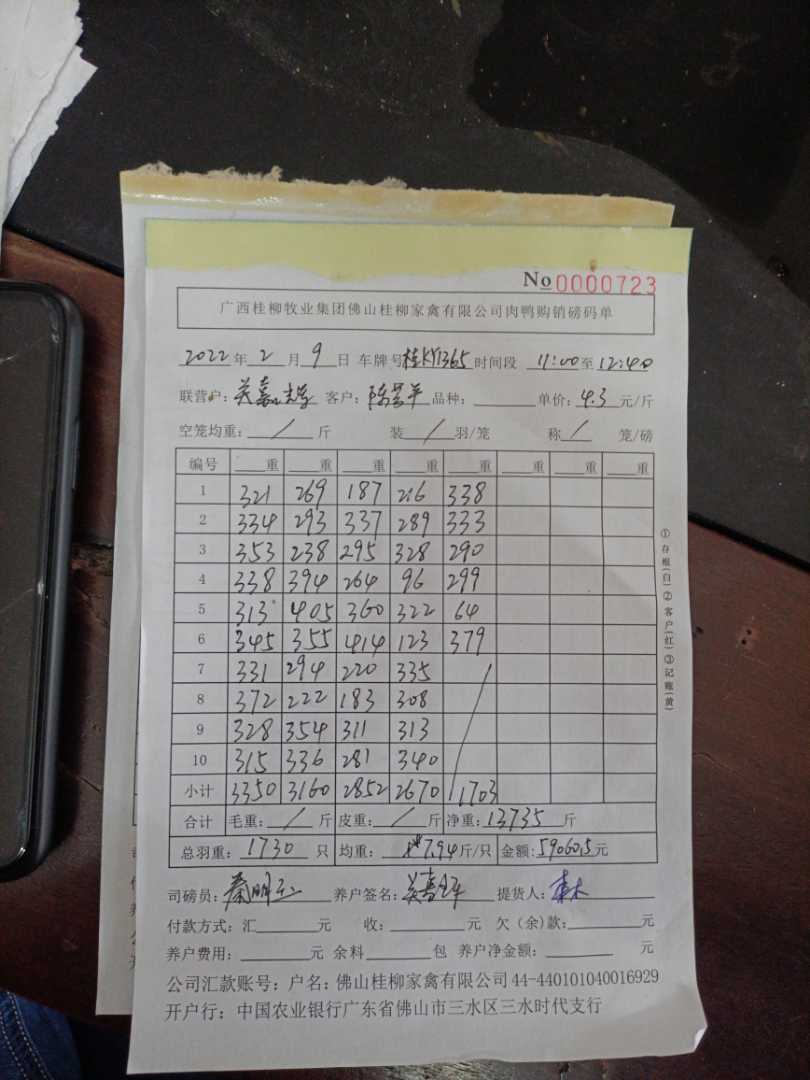 No 0000723
广西桂柳牧业集团佛山桂柳家禽有限公司肉鸭购销磅码单
2022年2月9日 车牌号桂KY1365时间段 11:00至12:40
联营户: 客户: 品种: 单价:4.3元/斤
空笼均重: / 斤 装 / 羽/笼 称 / 笼/磅
编号 重 重 重 重 重 重 重 重
1 321 269 187 216 338
2 334 293 337 289 333
3 353 238 295 328 290
4 338 394 264 96 299
5 313 405 360 322 64
6 345 355 414 123 379
7 331 294 220 335
8 372 222 183 308
9 328 354 311 313
10 315 336 281 340
小计 3350 3160 2852 2670 1703
合计 毛重: / 斤 皮重: / 斤 净重:13735斤
总羽重:1730只 均重:7.94斤/只 金额:59060.5元
司磅员: 养户签名: 提货人:
付款方式:汇 元 收: 元 欠(余)款: 元
养户费用: 元 余料 包 养户净金额: 元
公司汇款账号:户名:佛山桂柳家禽有限公司44-440101040016929
开户行:中国农业银行广东省佛山市三水区三水时代支行
①存根(白)②客户(红)③记账(黄)